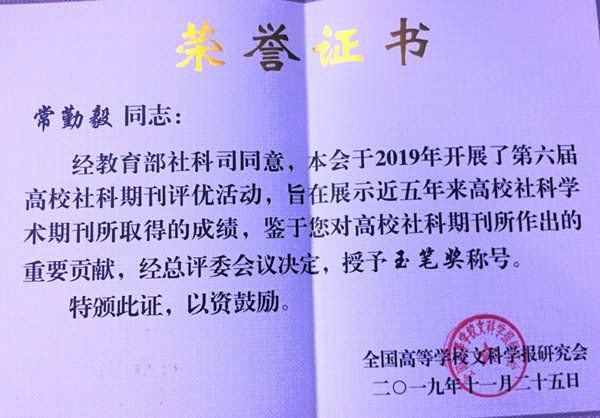 荣誉证书
常勤毅 同志：
经教育部社科司同意，本会于2019年开展了第六届
高校社科期刊评优活动，旨在展示近五年来高校社科学
术期刊所取得的成绩，鉴于您对高校社科期刊所作出的
重要贡献，经总评委会议决定，授予玉笔奖称号。
特颁此证，以资鼓励。
全国高等学校文科学报研究会
二〇一九年十一月二十五日